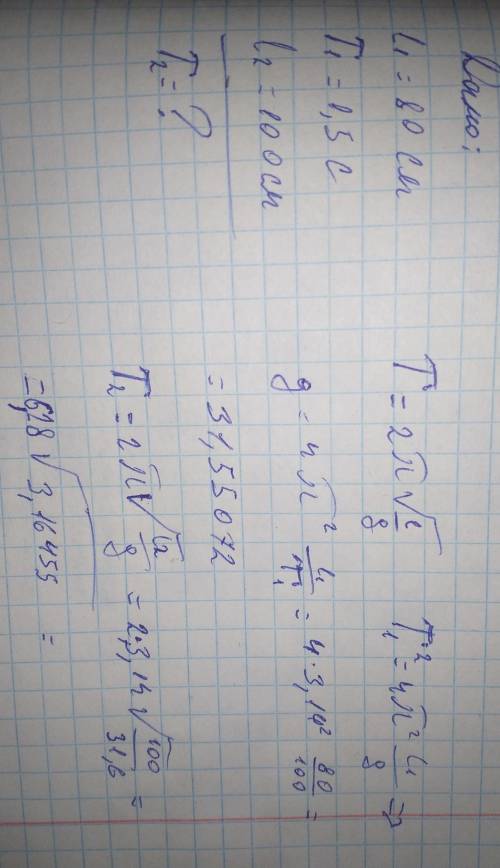 Дано:
l₁ = 80 см
T₁ = 1,5 с
l₂ = 100 см
T₂ = ?
T = 2π√(l/g) T₁² = 4π² l₁/g ⇒
g = 4π² l₁/T₁ = 4·3,14² 80/100 =
= 31,55072
T₂ = 2π√(l₂/g) = 2·3,14√(100/31,6) =
= 6,28√3,16455 =